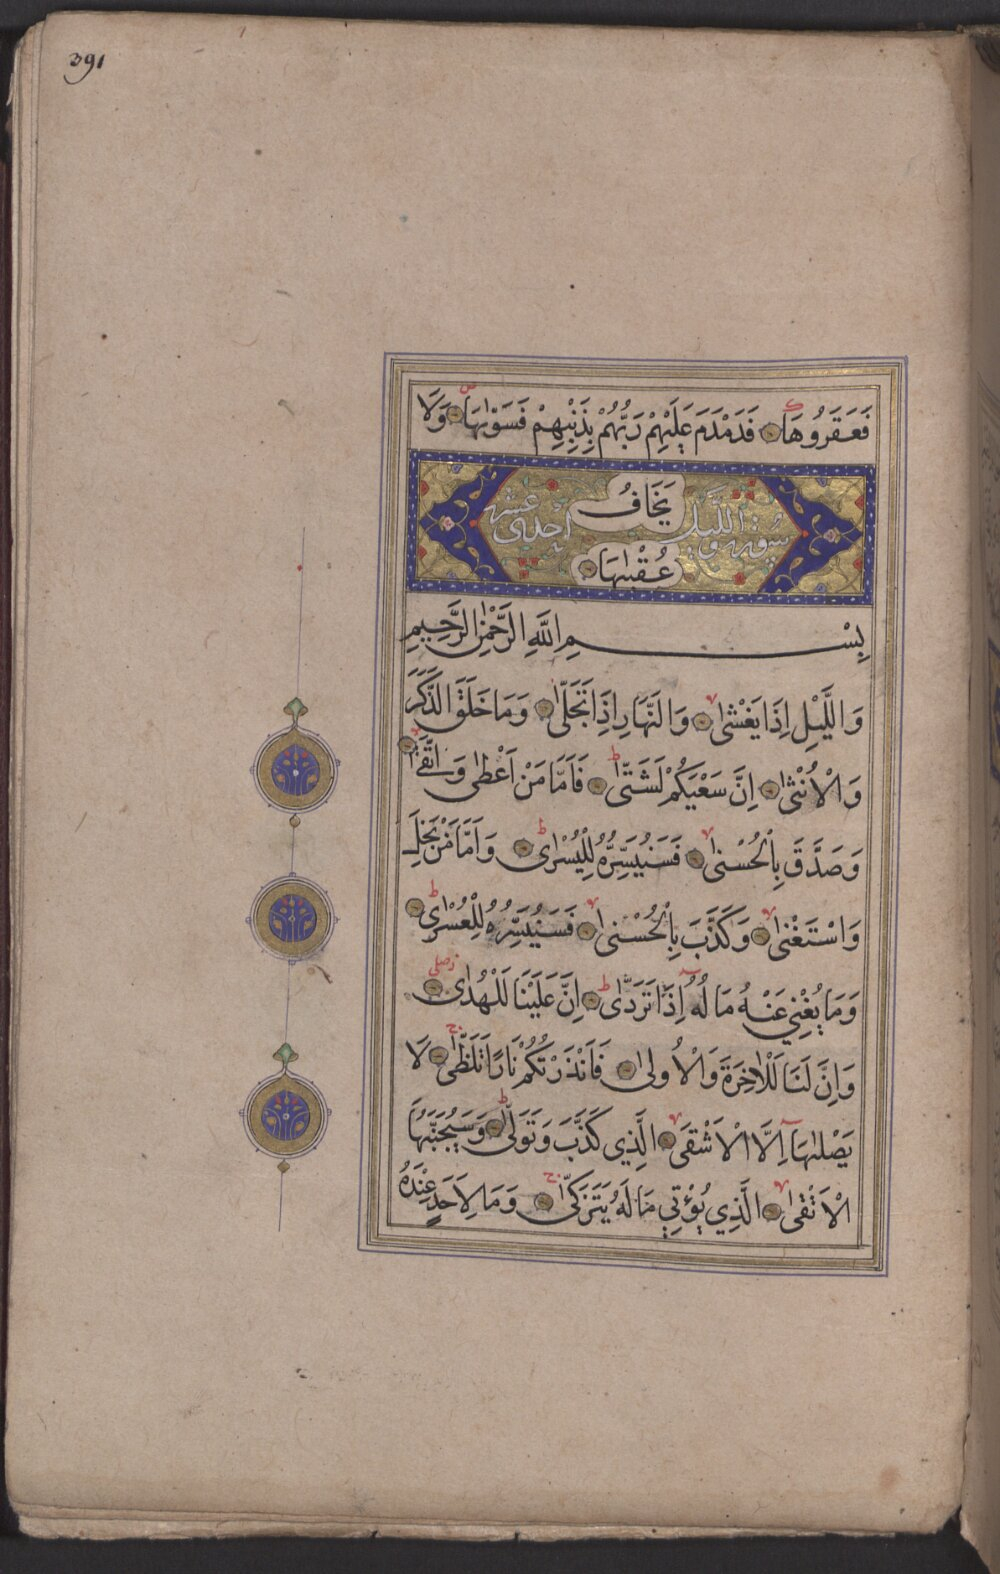 391
فَعَقَرُوهَا ك فَدَمْدَمَ عَلَيْهِمْ رَبُّهُمْ بِذَنْبِهِمْ فَسَوّٰىهَا س وَلَا
يَخَافُ
سورة والليل احدى عشر
عُقْبٰىهَا
بِسْمِ اللَّهِ الرَّحْمٰنِ الرَّحِيمِ
وَاللَّيْلِ اِذَا يَغْشٰى لا وَالنَّهَارِ اِذَا تَجَلّٰى وَمَا خَلَقَ الذَّكَرَ
وَالْاُنْثٰى اِنَّ سَعْيَكُمْ لَشَتّٰى ط فَاَمَّا مَنْ اَعْطٰى وَاتَّقٰى لا
وَصَدَّقَ بِالْحُسْنٰى لا فَسَنُيَسِّرُهُ لِلْيُسْرٰى ط وَاَمَّا مَنْ بَخِلَ
وَاسْتَغْنٰى لا وَكَذَّبَ بِالْحُسْنٰى لا فَسَنُيَسِّرُهُ لِلْعُسْرٰى ط
وَمَا يُغْنِي عَنْهُ مَالُهُ اِذَا تَرَدّٰى ط اِنَّ عَلَيْنَا لَلْهُدٰى زصلى
وَاِنَّ لَنَا لَلْاٰخِرَةَ وَالْاُولٰى فَاَنْذَرْتُكُمْ نَارًا تَلَظّٰى ج لَا
يَصْلٰىهَا اِلَّا الْاَشْقَى لا الَّذِي كَذَّبَ وَتَوَلّٰى ط وَسَيُجَنَّبُهَا
الْاَتْقٰى لا الَّذِي يُؤْتِي مَالَهُ يَتَزَكّٰى ج وَمَا لِاَحَدٍ عِنْدَهُ